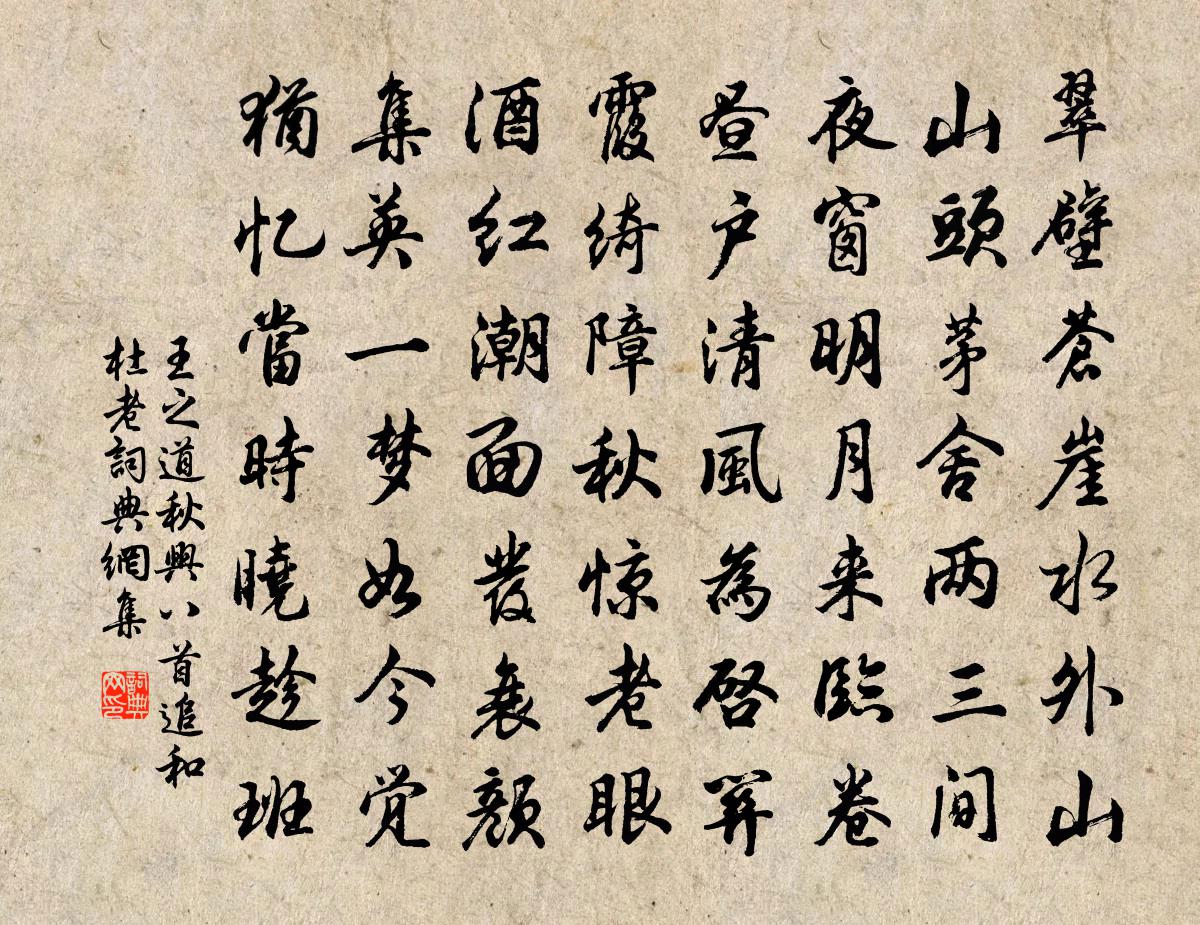 翠壁蒼崖水外山
山頭茅舍两三間
夜窗明月来臨卷
昼户清風為啓関
霞綺障秋惊老眼
酒红潮面發衰颜
集英一梦如今觉
猶忆當時曉趁班
王之道秋興八首追和
杜老詞典網集
詞典网印